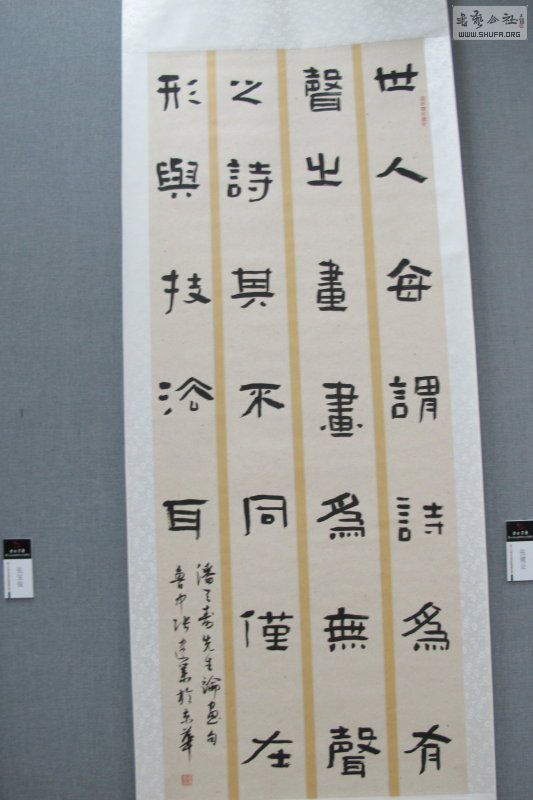 書藝公社
WWW.SHUFA.ORG
世人每謂詩爲有
聲之畫畫爲無聲
之詩其不同僅在
形與技法耳
潘天寿先生論画句
魯中张建業於京華